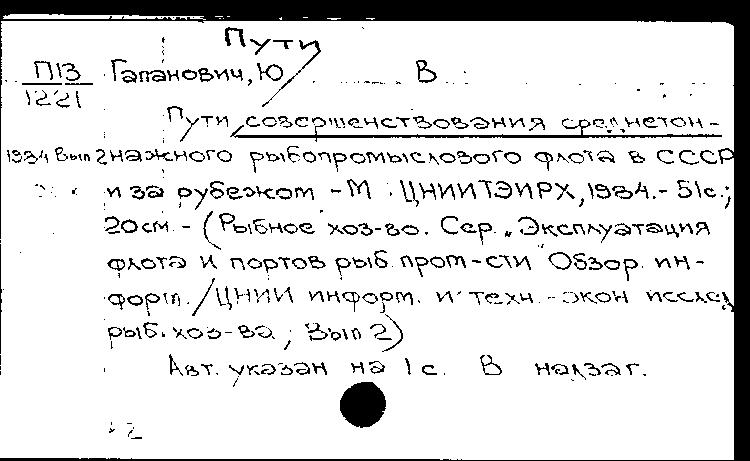 Пути
П13 Гапанович, Ю В
1221
Пути совершенствования среднетон-
1984 Вып 2 нажного рыбопромыслового флота в СССР
и за рубежом - М. ЦНИИТЭИРХ, 1984. - 51с.;
20см. - (Рыбное хоз-во. Сер. „Эксплуатация
флота и портов рыб. пром-сти" Обзор. ин-
форм. / ЦНИИ информ. и техн.-экон исслед
рыб. хоз-ва; Вып 2)
Авт. указан на 1 с. В надзаг.
2